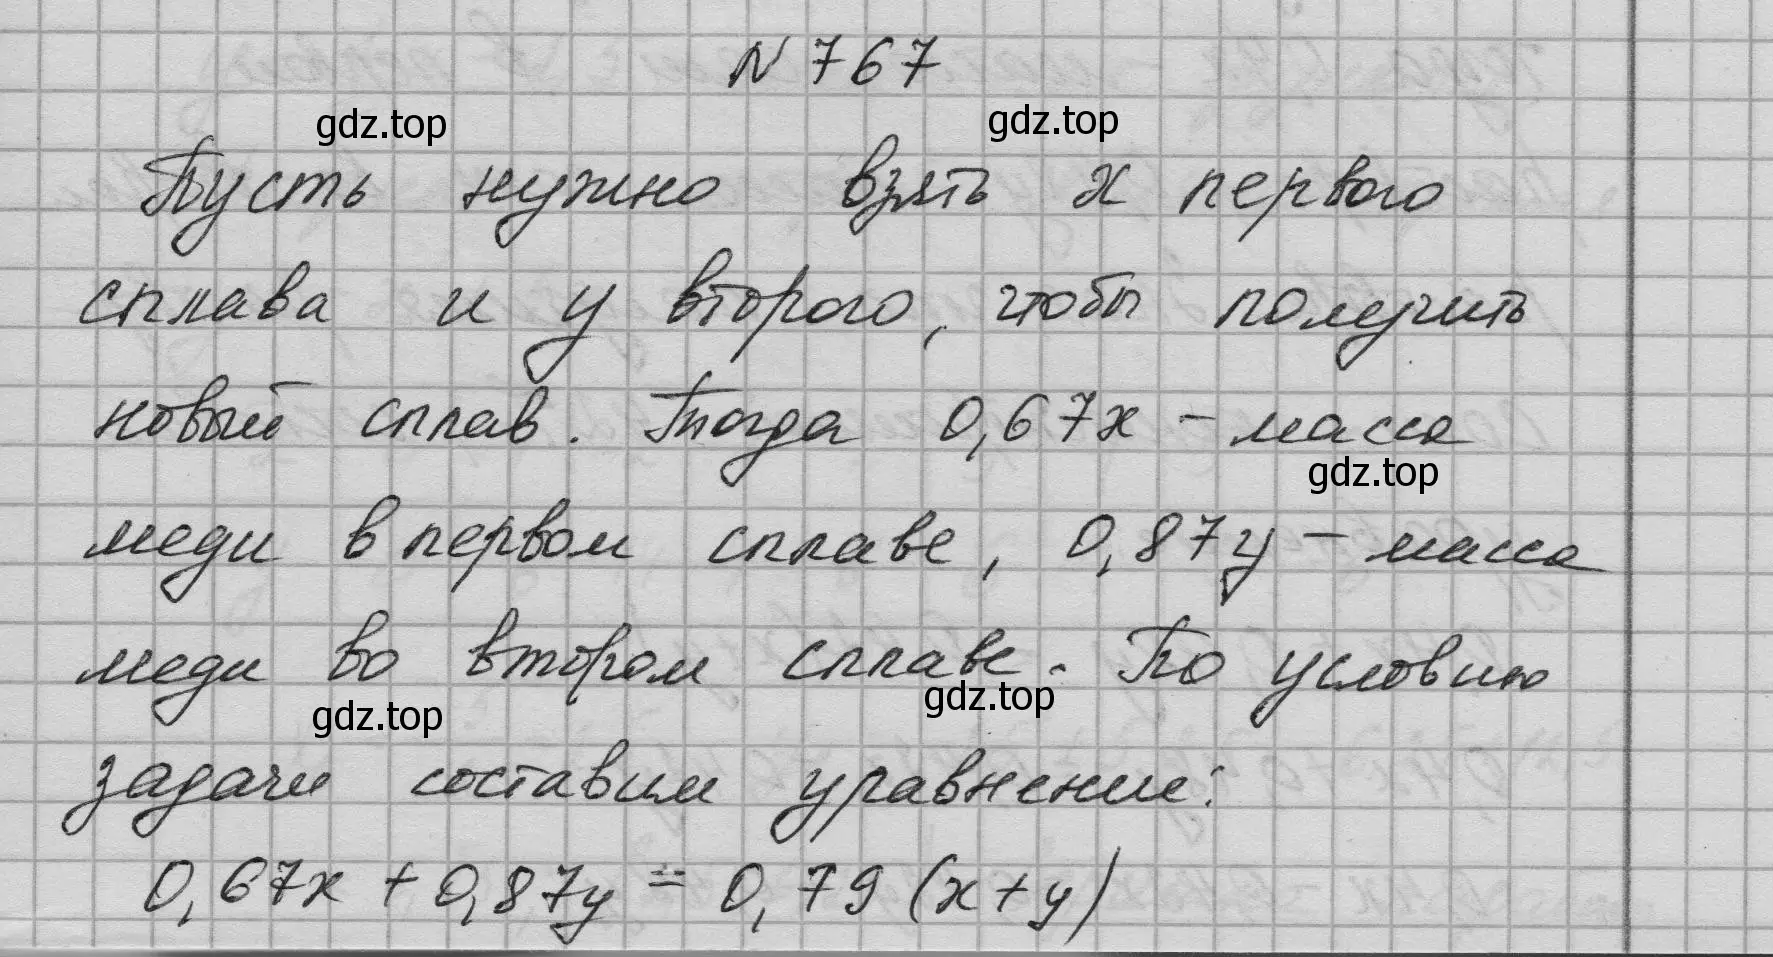 N 767
gdz.top
gdz.top
Пусть нужно взять x первого
сплава и y второго, чтобы получить
новый сплав. Тогда 0,67x - масса
gdz.top
меди в первом сплаве, 0,87y - масса
меди во втором сплаве. По условию
gdz.top
gdz.top
задачи составим уравнение:
0,67x + 0,87y = 0,79 (x+y)